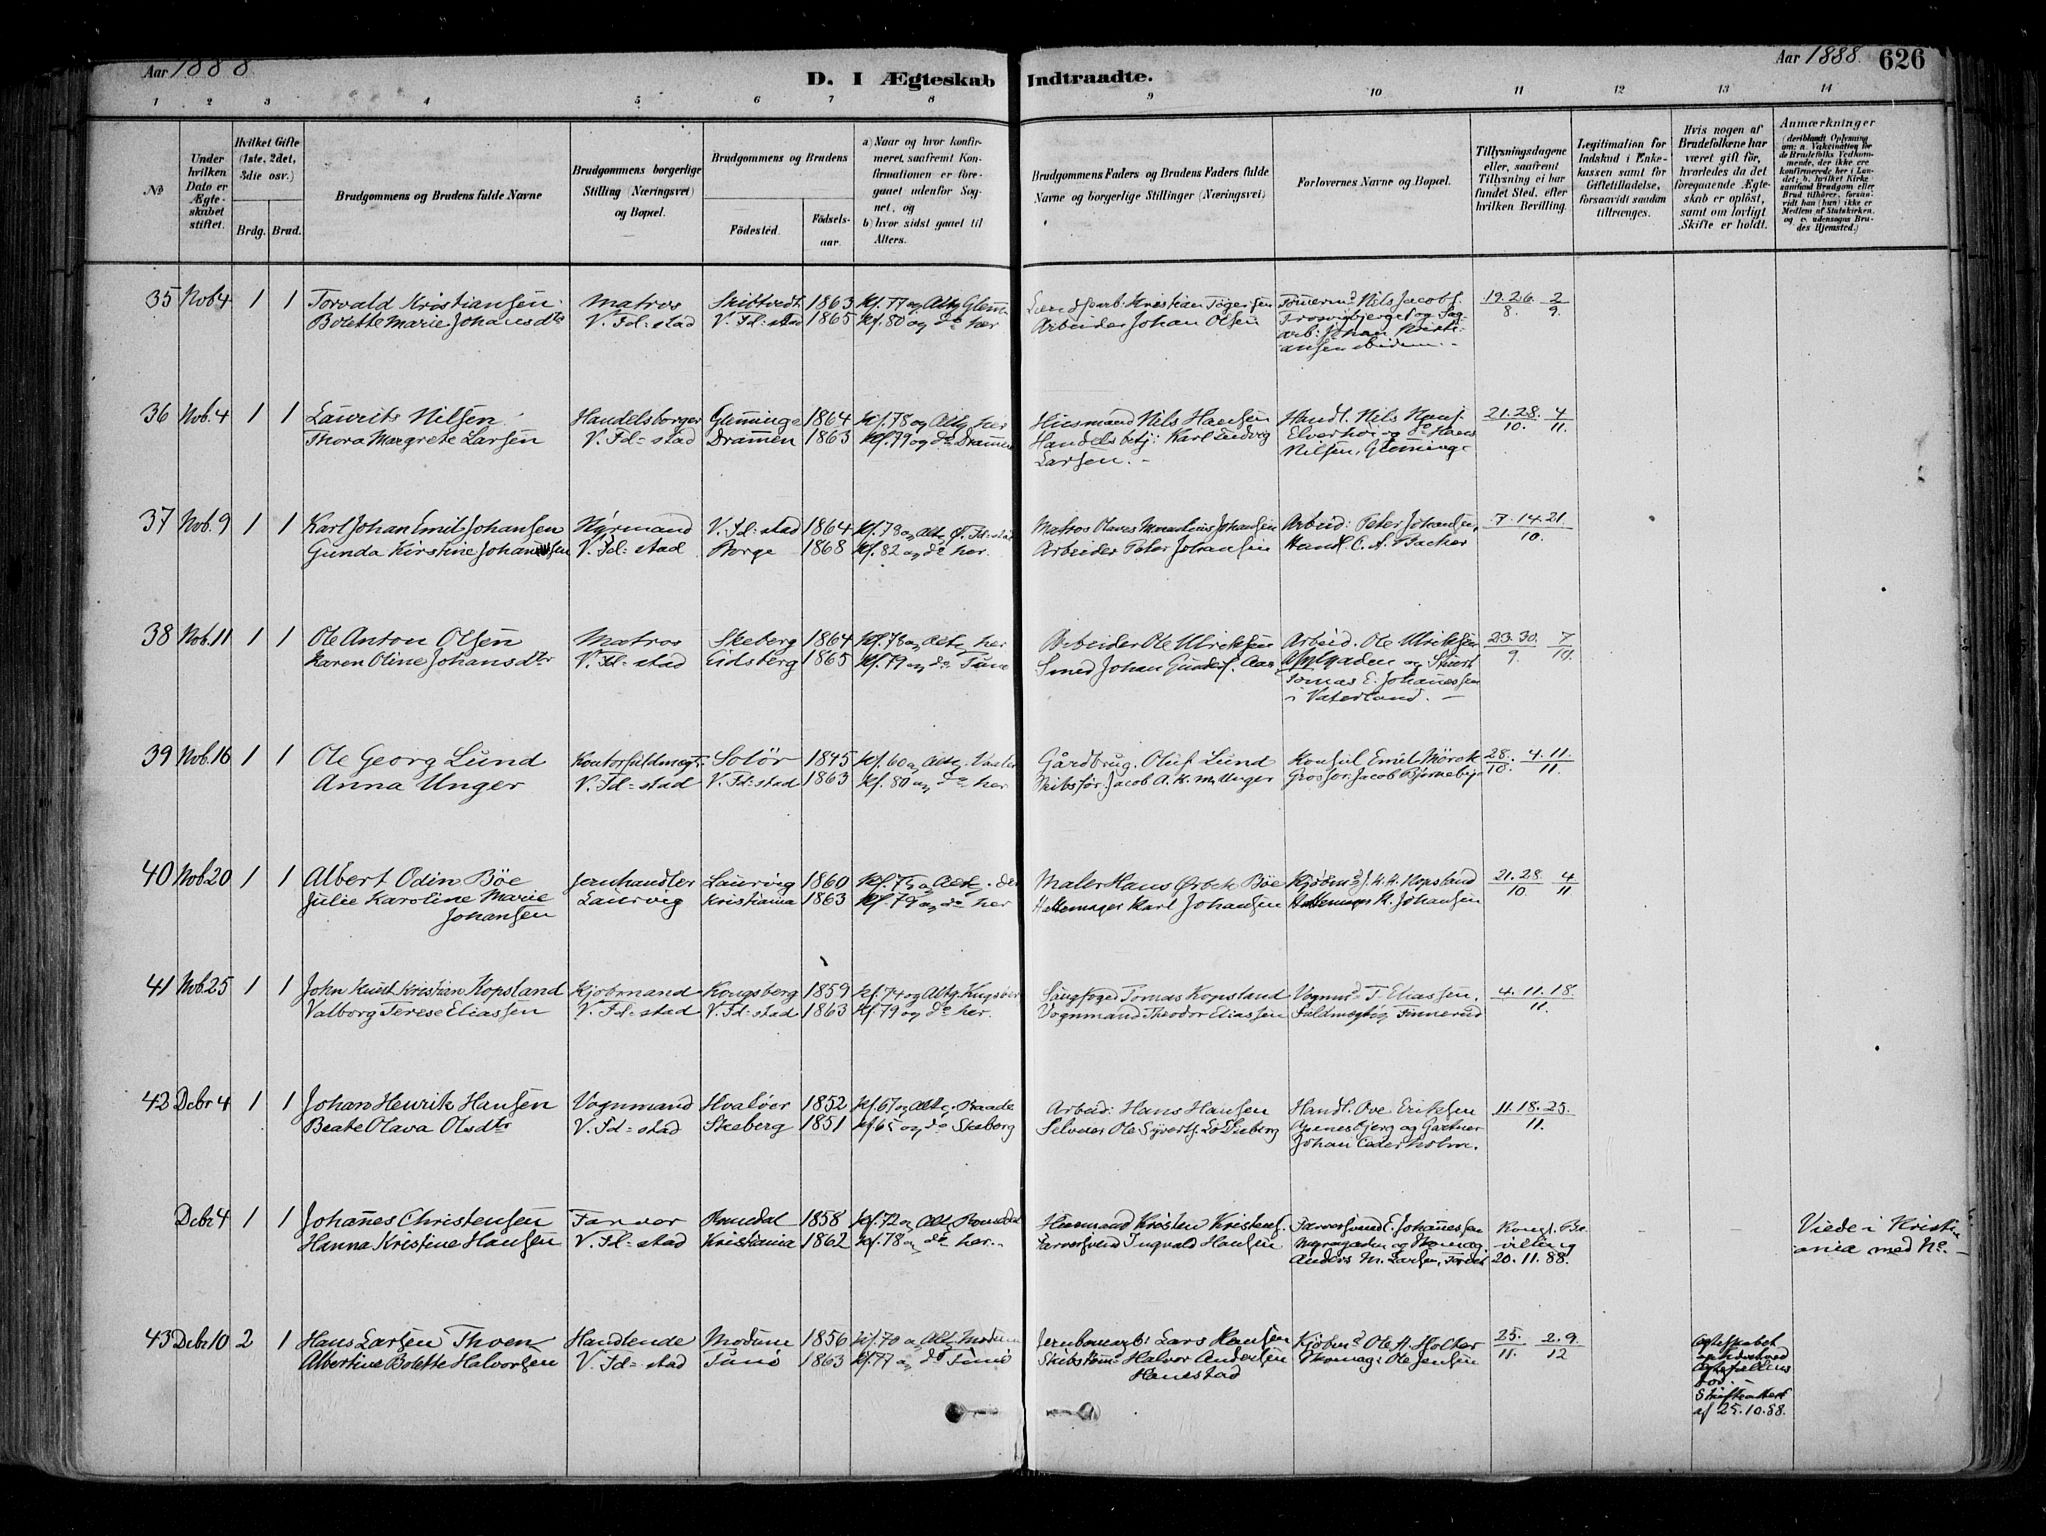 Aar 1888.
D. I Ægteskab Indtraadte.
Aar 1888. 626
1 2 3 4 5 6 7 8 9 10 11 12 13 14
No
Under hvilken Dato er Ægteskabet stiftet.
Hvilket Gifte (1ste, 2det, 3die osv.)
Brdg. Brud.
Brudgommens og Brudens fulde Navne
Brudgommens borgerlige Stilling (Næringsvei) og Bopæl.
Brudgommens og Brudens
Födested. Födsels-aar.
a) Naar og hvor konfirmeret, saafremt Konfirmationen er foregaaet udenfor Sognet, og
b) hvor sidst gaaet til Alters.
Brudgommens Faders og Brudens Faders fulde Navne og borgerlige Stillinger (Næringsvei)
Forlovernes Navne og Bopæl.
Tillysningsdagene eller, saafremt Tillysning ei har fundet Sted, efter hvilken Bevilling.
Legitimation for Indskud i Enkekassen samt for Giftetilladelse, forsaavidt saadan tiltrænges.
Hvis nogen af Brudefolkene har været gift för, hvorledes da det foregaaende Ægteskab er oplöst, samt om lovligt Skifte er holdt.
Anmærkninger
(deriblandt Oplysning om: a. Vaksination for de Brudefolks Vedkommende, der ikke ere konfirmerede her i Landet; b. hvilket Kirkesamfund Brudgom eller Brud tilhörer, forsaavidt han (hun) ikke er Medlem af Statskirken, og c. udensogns Brudes Hjemsted.)
35 Nob 4 1 1 Torvald Kristiansen Matros 1863 Kf. 77 og Altg Glem 19. 26. 2
Bolette Marie Johansdtr V. Fd: stad V. Fd: stad 1865 Kf. 80 og do her Arbeider Johan Olsen 8. 9.
36 Nob. 4 1 1 Laurits Nilsen Handelsborger Glemminge 1864 Kf. 78 og Altg her Husmand Nils Hansen Handl. Nils Hans. 21. 28. 4
Thora Margrete Larsen V. Fd: stad Drammen 1863 Kf. 79 og do Dramme Handelsbetj: Karl Ludvig Elverhöi og do Hans 10. 11.
Larsen. Nilsen, Glemminge
37 Nob. 9 1 1 Karl Johan Emil Johansen V. Fd: stad 1864 Kf. 78 og Altg Ø. Fd: stad Matros Johansen Arbeid: Peter Johansen, 7. 14. 21.
Gunda Kirstine Johansen V. Fd: stad Borge 1868 Kf. 82 og do her. Arbeider Peter Johansen Handl. C. A. Backer 10.
38 Nob. 11 1 1 Ole Anton Olsen Matros Skeberg 1864 Kf. 78 og Altg her Arbeider Ole Ulriksen Arbeid. Ole Ulriksen 23. 30. 7
Karen Oline Johansdtr V. Fd: stad Eidsberg 1865 Kf. 79 og do Tune Smed Johan og 9. 10.
Tomas E. Johanessen
i Vaterland.
39 Nob. 16 1 1 Ole Georg Lund Kontorfuldmægt. Solör 1845 Kf. 60 og Altg Gårdbrug. Oluf Lund Konsul Emil Mørck 28. 4. 11.
Anna Unger V. Fd: stad V. Fd: stad 1863 Kf. 80 og do her Skibsför. Jacob A. Unger Grosser. Jacob Bjørneby 10. 11.
40 Nob 20 1 1 Albert Odin Böe Jernhandler Laurvig 1860 Kf. 75 og Altg. Maler Hans Ørbek Böe Kjöbmd J. K. K. Kopsland 21. 28. 4
Julie Karoline Marie Laurvig Kristiania 1863 Kf. 79 og do her Hattemager Karl Johansen Hattemager K. Johansen 10 11
Johansen
41 Nob. 25 1 1 John Knud Kristian Kopsland Kjöbmand Kongsberg 1859 Kf. 74 og Altg. Tomas Kopsland Vognmd T. Eliassen. 4. 11. 18.
Valborg Terese Eliassen V. Fd: stad V. Fd: stad 1863 Kf. 79 og do her. Vognmand Theodor Eliassen Fuldmægtig Finnerud 11.
42 Debr 4 1 1 Johan Henrik Hansen Vognmand Hvalöer 1852 Kf. 67 og Altg. Raade Arbeid: Hans Hansen Handl. Ove Eriksen 11. 18. 25.
Beate Olava Olsdtr V. Fd: stad Skeberg 1851 Kf 65 og do Skeberg Selveier Ole Syverts. Skeberg og Gartner 11.
Johan Cederholm.
Debr 4 1 1 Johanes Christensen Farver Romedal 1858 Kf. 72 og Altg Romedal Husmand Kristen Kristens. Farversvend E. Johanessen Kongl. Be-
Hanna Kristine Hansen V. Fd: stad Kristiania 1862 Kf. 78 og do her. Farversvend Ingvald Hansen og Skomag. villing
Anders M. Larsen, 20. 11. 88.
Viede i Kristi-
ania med No.
43 Debr 10 2 1 Hans Larsen Thoen Handlende Modum 1856 Kf. 70 og Altg Modum Lars Hansen Kjöbmd Ole A. Holter 25. 2. 9.
Albertine Bolette Halvorsen V. Fd: stad Tune 1863 Kf. 77 og do Tune Skibstöm: Halvor Andersen Skomag: Ole Jensen 11. 12
Hanestad
Ægteskabet
ophævet ved
Ægtefællens
Död.
Skifteattest
af 25. 10. 88.